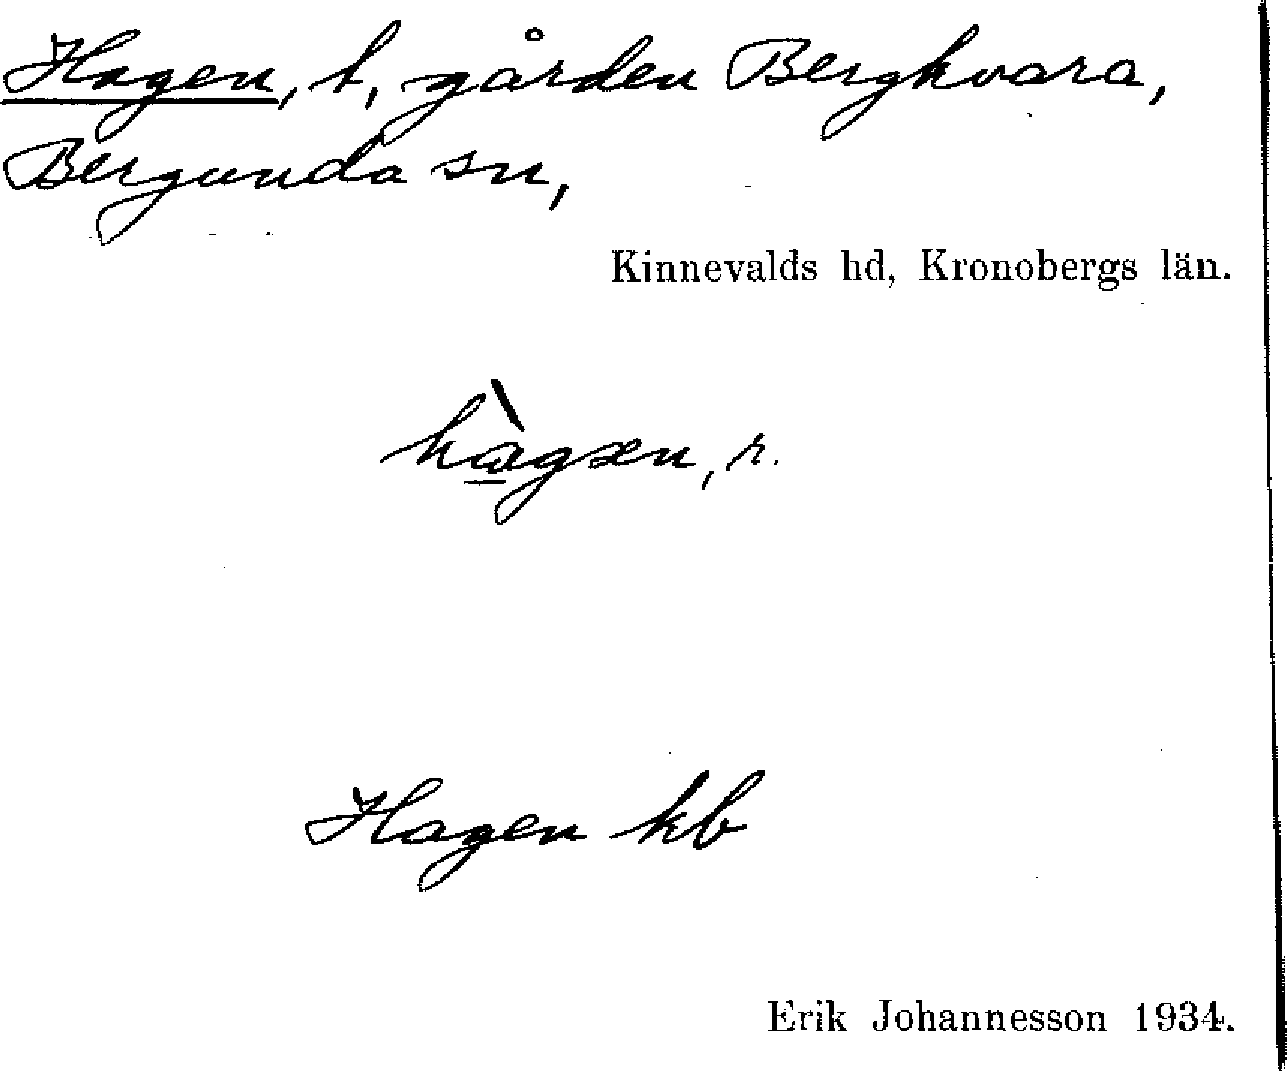 Hagen, t, gården Bergkvara,
Bergunda sn,
Kinnevalds hd, Kronobergs län.
hàgæn, r.
Hagen kb
Erik Johannesson 1934.